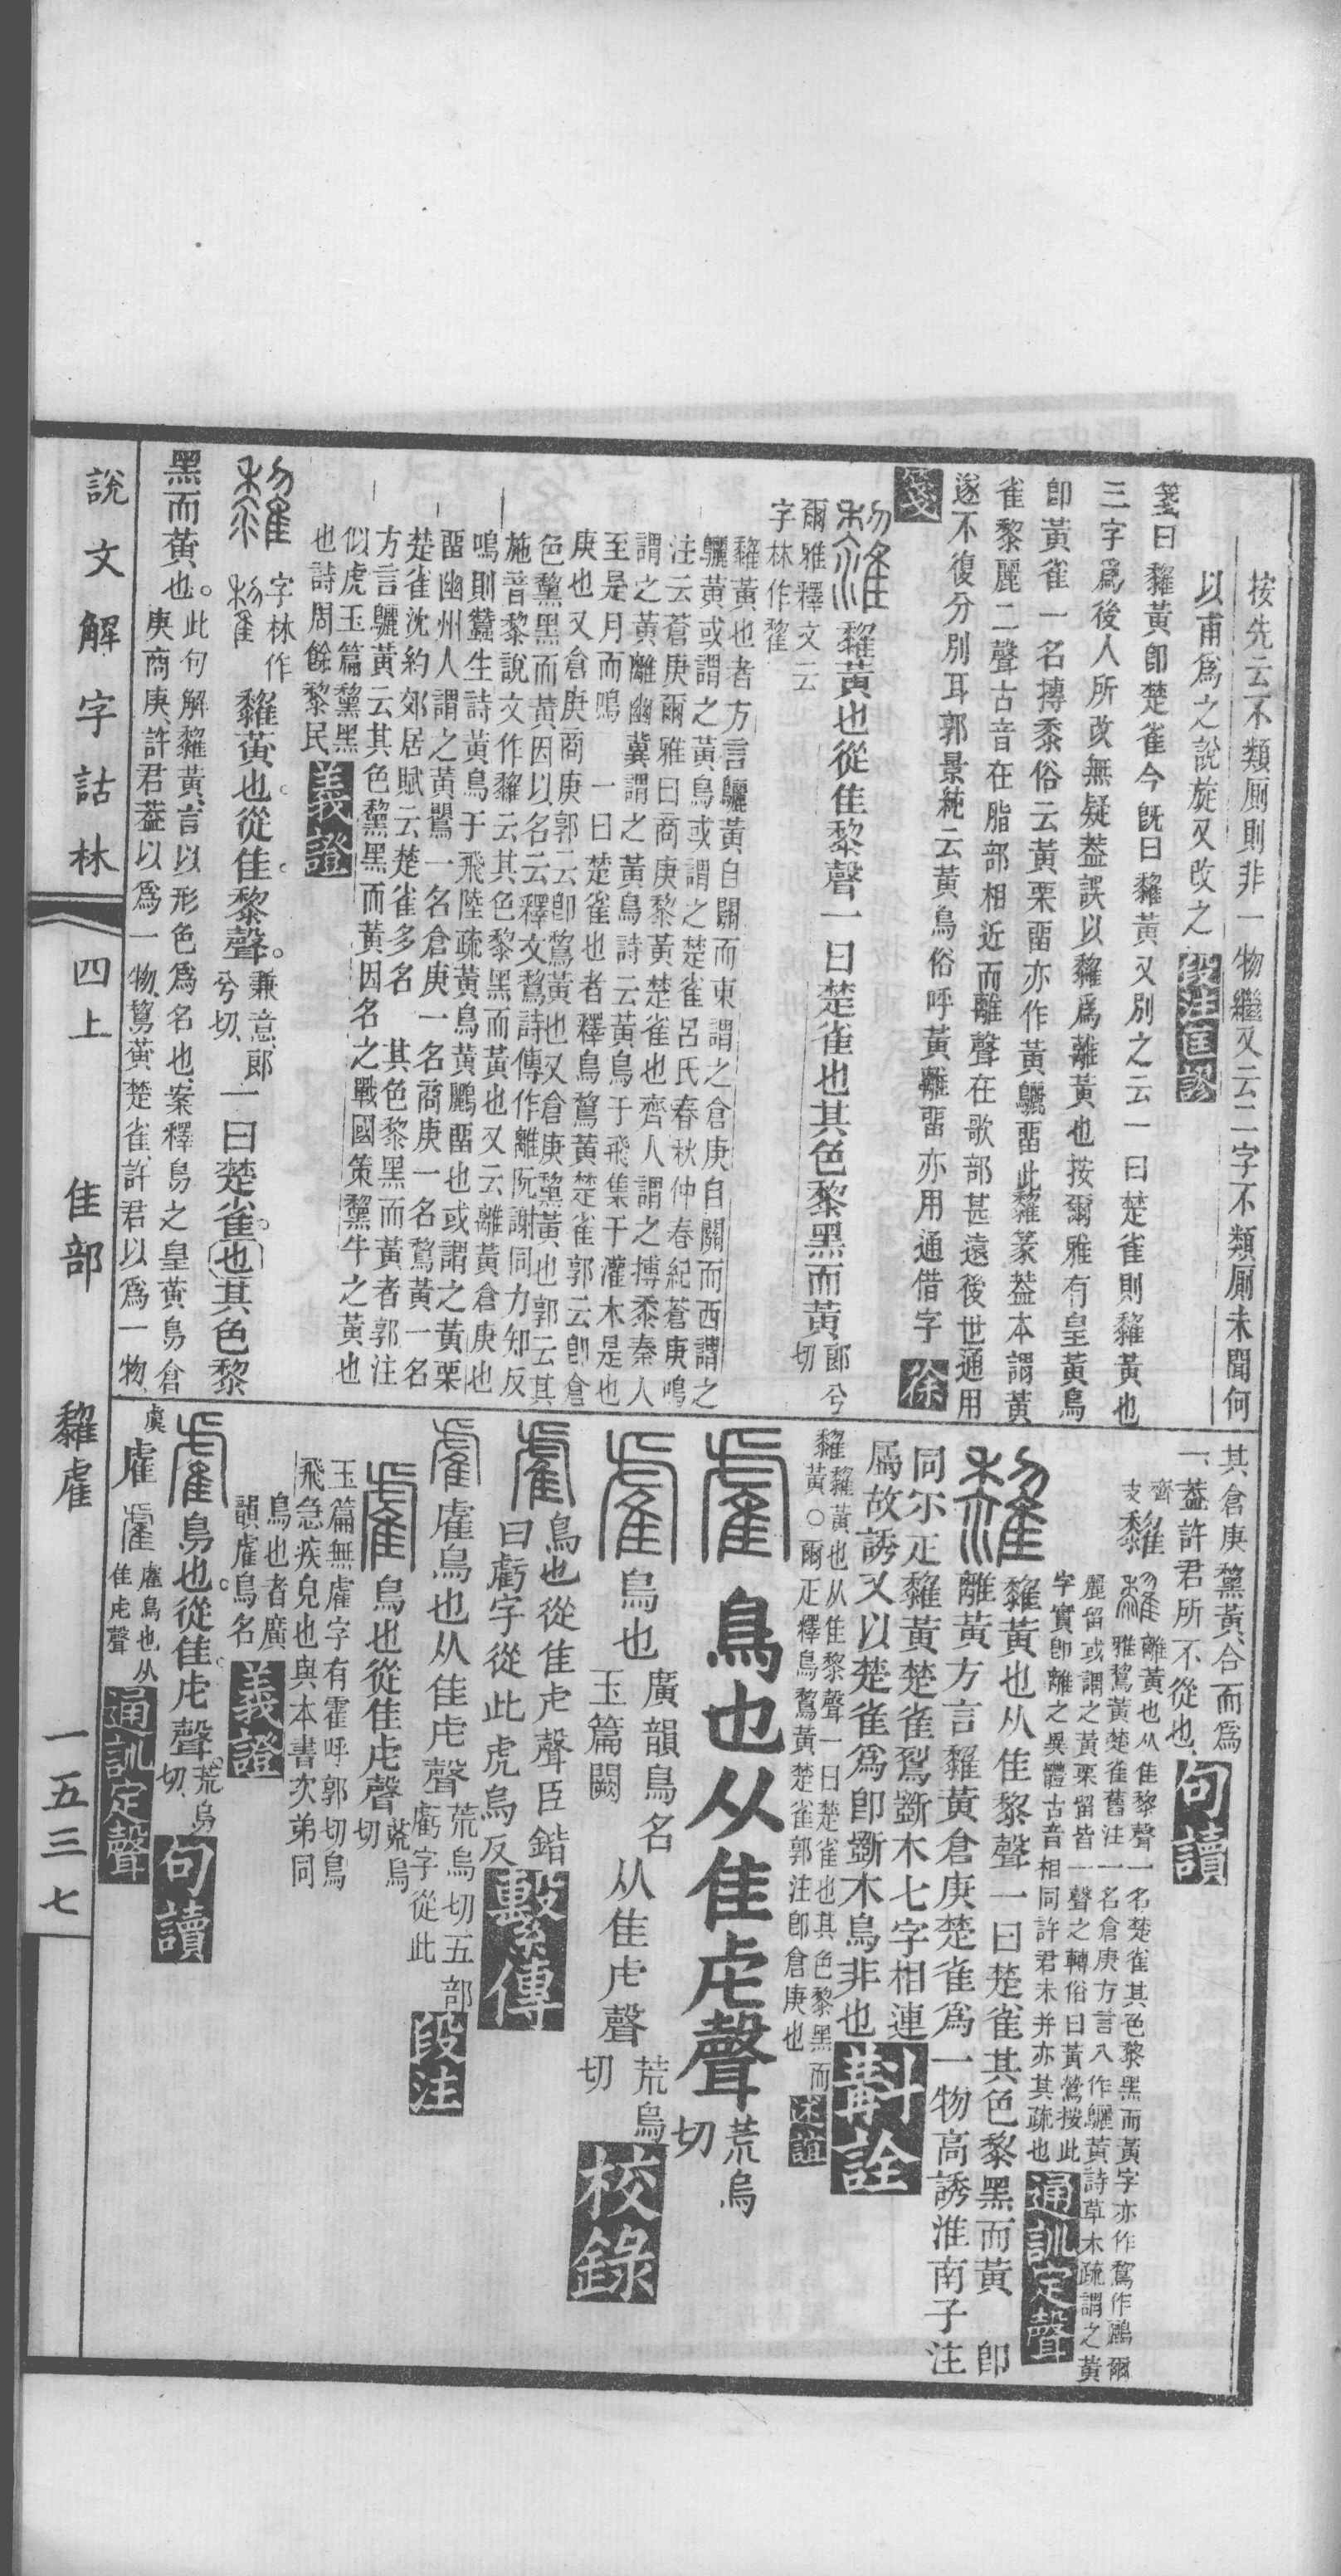 按先云不類厠則非一物繼又云二字不類厠未聞何
以甫爲之說旋又改之 段注匡謬
箋曰雞黃卽楚雀今旣曰雞黃又別之云一曰楚雀則雞黃也
三字爲後人所改無疑葢誤以雞爲離黃也按爾雅有皇黃鳥
卽黃雀一名搏黍俗云黃栗畱亦作黃鸝畱此雞篆葢本謂黃
雀黎麗二聲古音在脂部相近而離聲在歌部甚遠後世通用
遂不復分別耳郭景純云黃鳥俗呼黃離畱亦用通借字 徐
箋
黃也從隹黎聲一曰楚雀也其色黎黑而黃 郎兮切
爾雅釋文云
字林作
黃也者方言鸝黃自關而東謂之倉庚自關而西謂之
鸝黃或謂之黃鳥或謂之楚雀呂氏春秋仲春紀蒼庚鳴
注云蒼庚爾雅曰商庚黎黃楚雀也齊人謂之搏黍秦人
謂之黃離幽冀謂之黃鳥詩云黃鳥于飛集于灌木是也
至是月而鳴 一曰楚雀也者釋鳥鵹黃楚雀郭云卽倉
庚也又倉庚商庚郭云卽鵹黃也又倉庚黧黃也郭云其
色黧黑而黃因以名云釋文鵹詩傳作離阮謝同力知反
施音黎說文作云其色黎黑而黃也又云離黃倉庚也
鳴則蠶生詩黃鳥于飛陸疏黃鳥黃鸝畱也或謂之黃栗
畱幽州人謂之黃鸎一名倉庚一名商庚一名鵹黃一名
楚雀沈約郊居賦云楚雀多名 其色黎黑而黃者郭注
方言鸝黃云其色黧黑而黃因名之戰國策黧牛之黃也
似虎玉篇黧黑
也詩周餘黎民 義證
字林作
黃也從隹黎聲 兼意郎兮切 一曰楚雀也其色黎
黑而黃也 此句解黃言以形色爲名也案釋鳥之皇黃鳥倉
庚商庚許君葢以爲一物鵹黃楚雀許君以爲一物
其倉庚黧黃合而爲
一葢許君所不從也 句讀
離黃也从隹黎聲一名楚雀其色黎黑而黃字亦作鵹作鸝爾
雅鵹黃楚雀舊注一名倉庚方言八作鸝黃詩草木疏謂之黃
麗留或謂之黃栗留皆一聲之轉俗曰黃鶯按此
字實卽離之異體古音相同許君未并亦其疏也 通訓定聲
黃也从隹黎聲一曰楚雀其色黎黑而黃 卽
離黃方言黃倉庚楚雀爲一物高誘淮南子注
同尒疋黃楚雀鴷斲木七字相連
屬故誘又以楚雀爲卽斲木鳥非也 斠詮
黃也从隹黎聲一曰楚雀也其色黎黑而
黃○爾疋釋鳥鵹黃楚雀郭注卽倉庚也 述誼
鳥也从隹虍聲 荒烏切
鳥也 廣韻鳥名玉篇闕 从隹虍聲 荒烏切 校錄
鳥也從隹虍聲臣鍇
曰虧字從此虎烏反 繫傳
雐鳥也从隹虍聲 荒烏切五部虧字從此 段注
鳥也從隹虍聲 荒烏切
玉篇無雐字有霍呼郭切鳥
飛急疾皃也與本書次弟同
鳥也者廣
韻雐鳥名 義證
鳥也從隹虍聲 荒烏切 句讀
雐 雐鳥也从隹虍聲 通訓定聲
說文解字詁林 四上 隹部 雐 一五三七